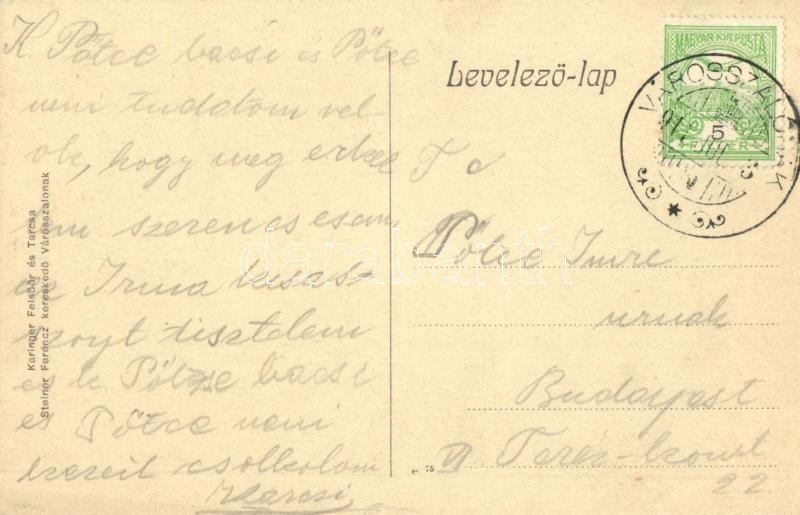 K. Pőtce bacsi és Pőtce
neni tudatom vel-
ök, hogy meg erkez
tem szerencsesen
az Irma kisas-
szonyt tisztelem
es k. Pőtce bacsi
es Pőtce neni
kezeit csolkolom
Karcsi
Karinger Felsőőr és Tarcsa
Steiner Ferencz kereskedő Városszalonak
Levelező-lap
MAGYAR KIR. POSTA
5
FILLÉR
VÁROSSZALÓNAK
T c
Pőtce Imre
urnak
Budapest
VI Teréz-körut
22
75
darabanth